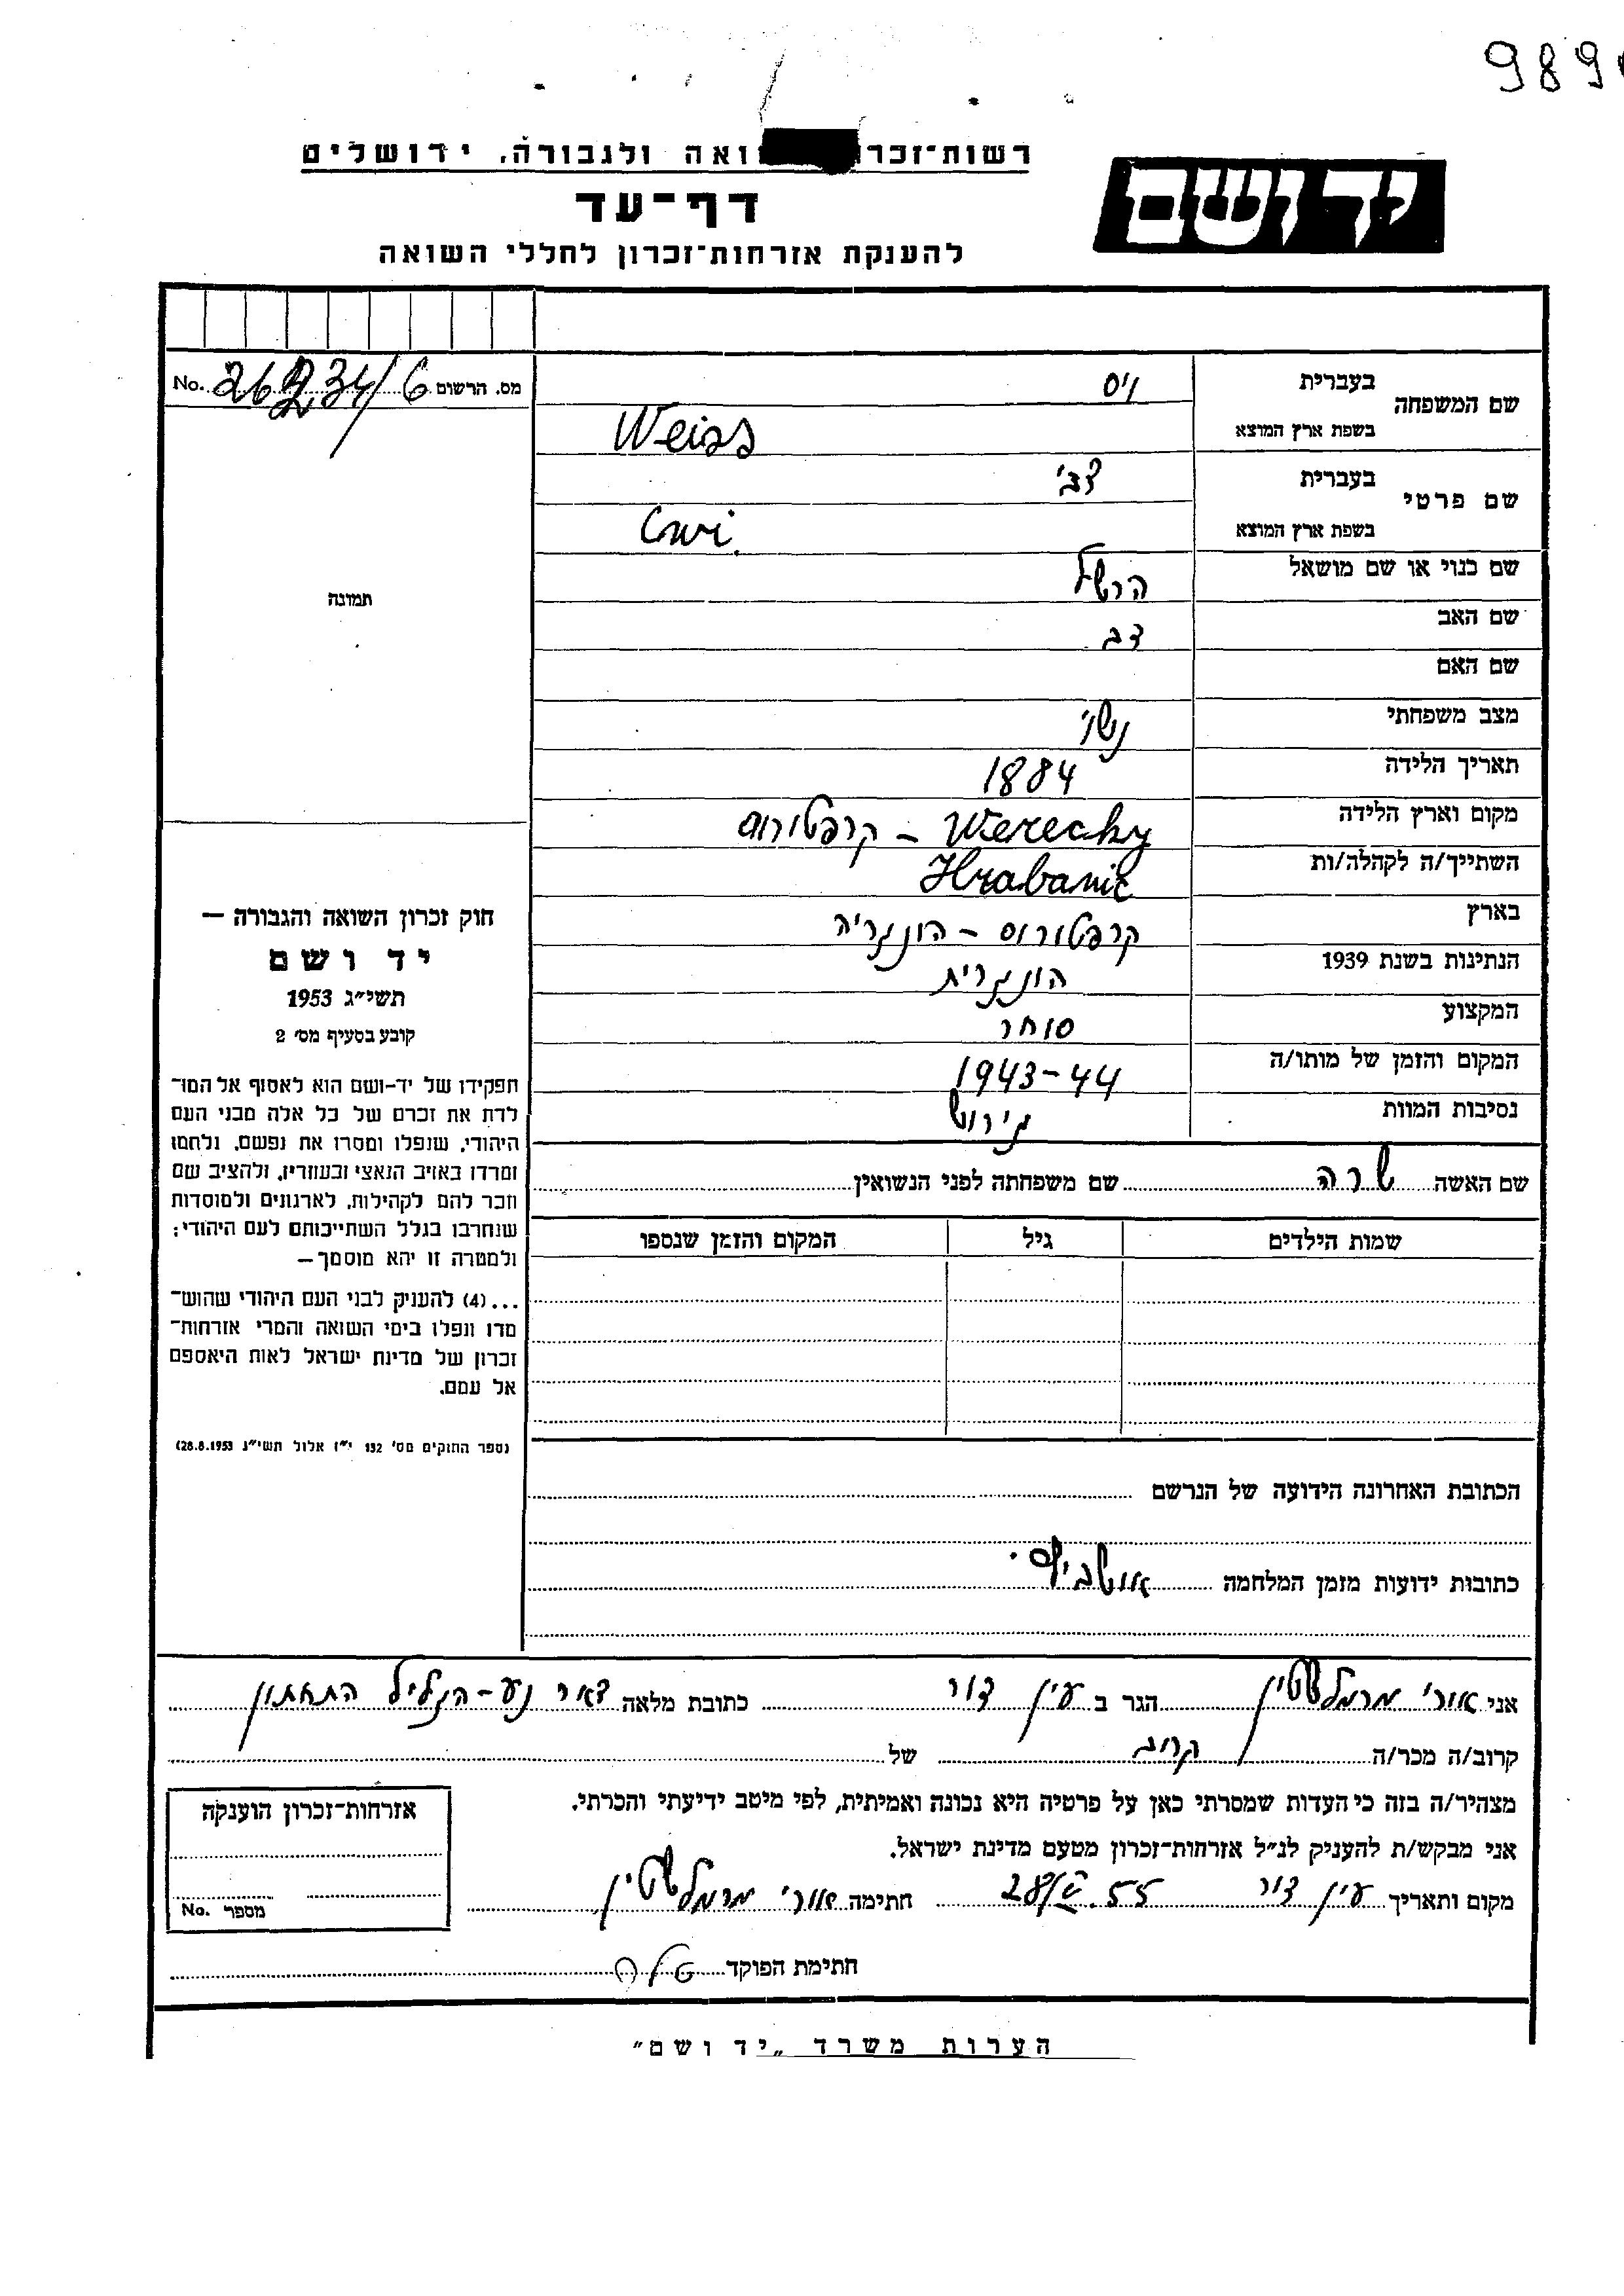 989
רשות־זכרו ואה ולגבורה, ירושלים
יד ושם
דף־עד
להענקת אזרחות־זכרון לחללי השואה
No. 26234/6 מס. הרשום
שם המשפחה
בעברית וייס
בשפת ארץ המוצא Weiss
שם פרטי
בעברית צבי
בשפת ארץ המוצא Cwi
שם כנוי או שם מושאל הרשל
שם האב דב
שם האם
מצב משפחתי נשוי
תאריך הלידה 1884
מקום וארץ הלידה Werecky – קרפטורוס
השתייך/ה לקהלה/ות Hrabanic
בארץ קרפטורוס – הונגריה
הנתינות בשנת 1939 הונגרית
המקצוע סוחר
המקום והזמן של מותו/ה 1943-44
נסיבות המוות גירוש
שם האשה שרה שם משפחתה לפני הנשואין
שמות הילדים גיל המקום והזמן שנספו
הכתובת האחרונה הידועה של הנרשם
כתובות ידועות מזמן המלחמה אושביץ
תמונה
חוק זכרון השואה והגבורה —
יד ושם
תשי״ג 1953
קובע בסעיף מס׳ 2
תפקידו של יד-ושם הוא לאסוף אל המו־
לדת את זכרם של כל אלה מבני העם
היהודי, שנפלו ומסרו את נפשם, נלחמו
ומרדו באויב הנאצי ובעוזריו, ולהציב שם
וזכר להם לקהילות, לארגונים ולמוסדות
שנחרבו בגלל השתייכותם לעם היהודי;
ולמטרה זו יהא מוסמך—
...(4) להעניק לבני העם היהודי שהוש־
מדו ונפלו בימי השואה והמרי אזרחות־
זכרון של מדינת ישראל לאות היאספם
אל עמם.
(ספר החוקים מס׳ 132 י״ז אלול תשי״ג 28.8.1953)
אני אורי מרמלשטיין הגר ב עין דור כתובת מלאה דאר נע – הגליל התחתון
קרוב/ה מכר/ה קרוב של
מצהיר/ה בזה כי העדות שמסרתי כאן על פרטיה היא נכונה ואמיתית, לפי מיטב ידיעתי והכרתי.
אני מבקש/ת להעניק לנ״ל אזרחות־זכרון מטעם מדינת ישראל.
מקום ותאריך עין דור 55 חתימה אורי מרמלשטיין
חתימת הפוקד
אזרחות־זכרון הוענקה
No. מספר
הערות משרד „יד ושם״